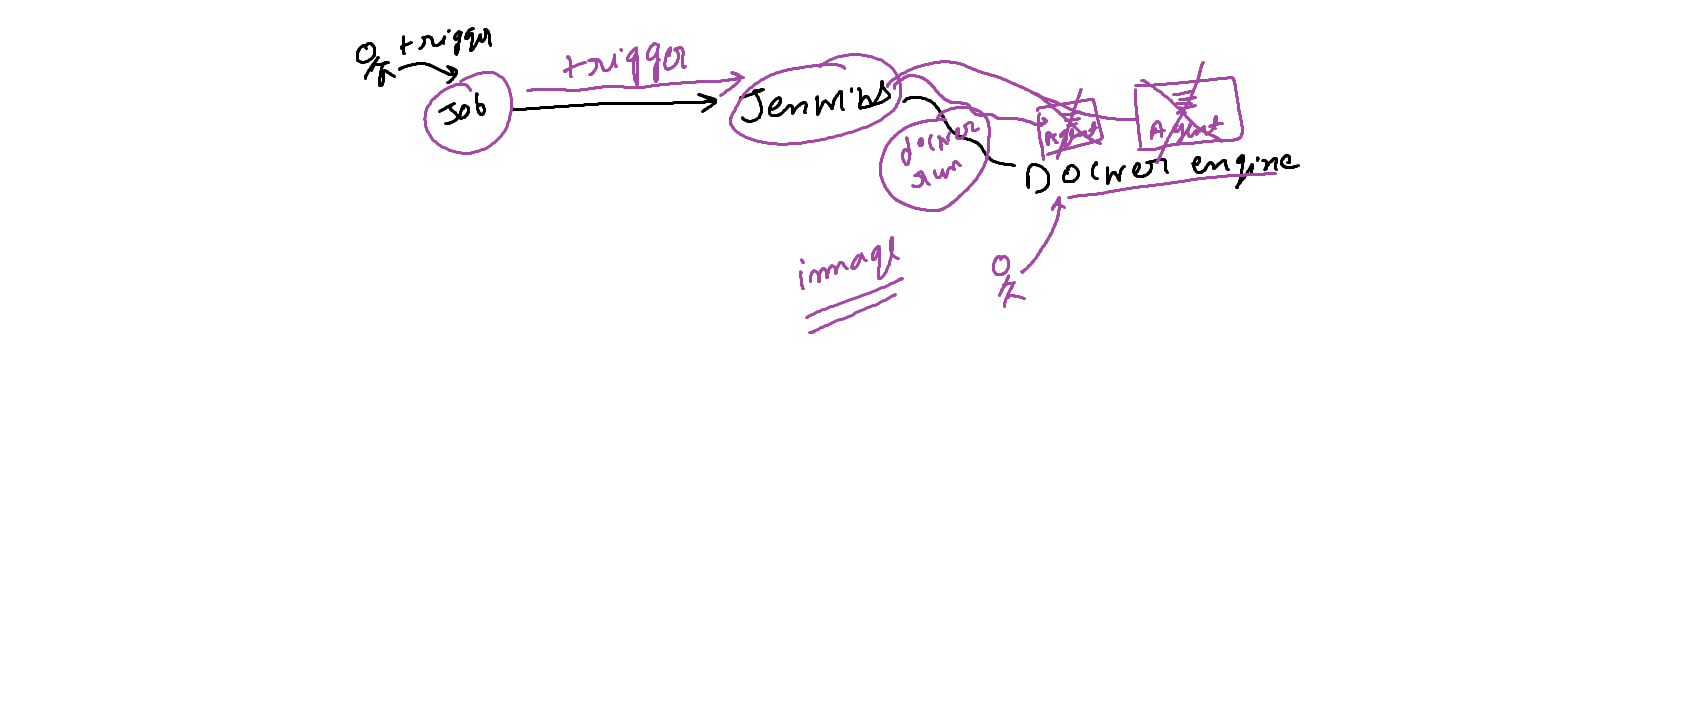 trigger
trigger
Job
Jenkins
docker
run
Agent
Agent
Docker engine
image